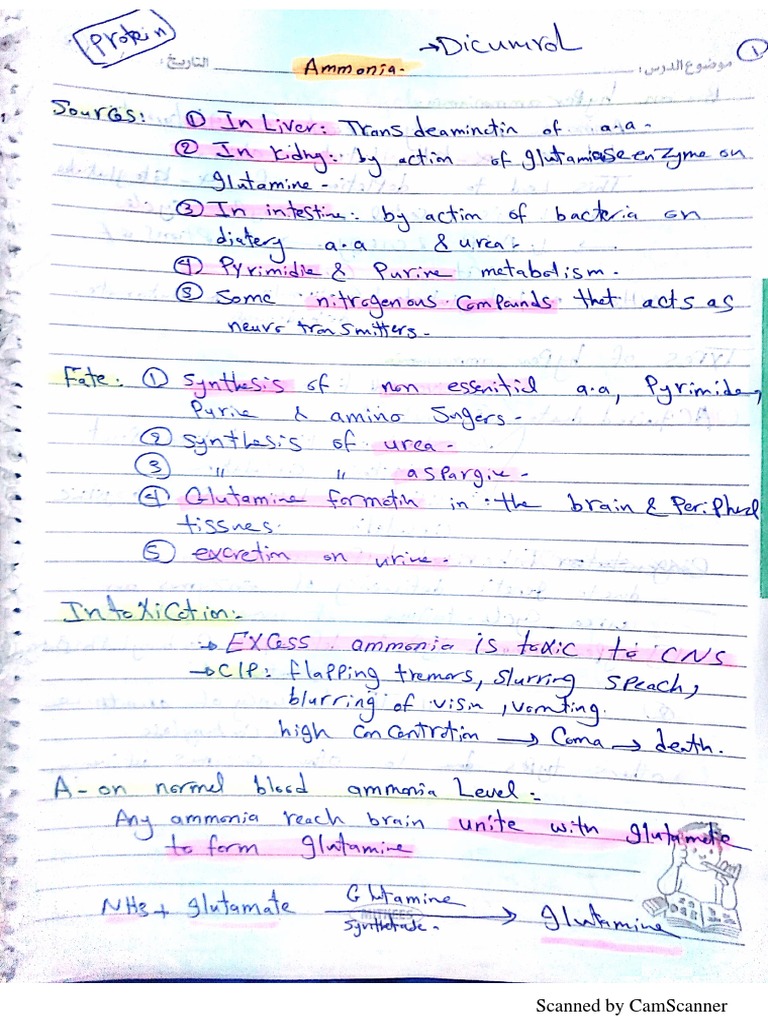 Protein
→ Dicumrol
①
موضوع الدرس:
التاريخ:
Ammonia-
Sources: ① In Liver: Trans deaminctin of a.a-
② In kidny: by action of glutamiase enzyme on
glutamine-
③ In intestine: by action of bacteria on
diatery a.a & urea-
④ Pyrimidie & Purine metabolism.
⑤ Some nitrogenous Compounds that acts as
neuro transmitters-
Fate: ① Synthesis of non essenitid a.a, Pyrimide,
Purie & amino Sugers-
② Synthesis of urea-
③ " " aspargie-
④ Glutamine formatin in the brain & Peripheral
tissues.
⑤ excretin on urine-
Intoxication:-
→ Excess ammonia is toxic to CNS
→ C/P: flapping tremors, slurring speach,
blurring of visin, vomting.
high concentration → Coma → death.
A- on normel blood ammonia Level:-
Any ammonia reach brain unite with glutamete
to form glutamine
NH3 + glutamate
Glutamine
Synthetade-
→ glutamine
Scanned by CamScanner